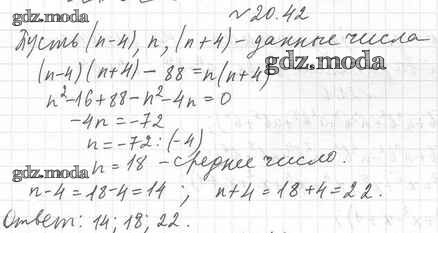 gdz.moda
№20.42
Пусть (n-4), n, (n+4) - данные числа
(n-4)(n+4) - 88 = n(n+4)
gdz.moda
n²-16+88-n²-4n=0
-4n=-72
n=-72:(-4)
n=18 - среднее число.
gdz.moda
n-4=18-4=14 ; n+4=18+4=22.
Ответ: 14; 18; 22.